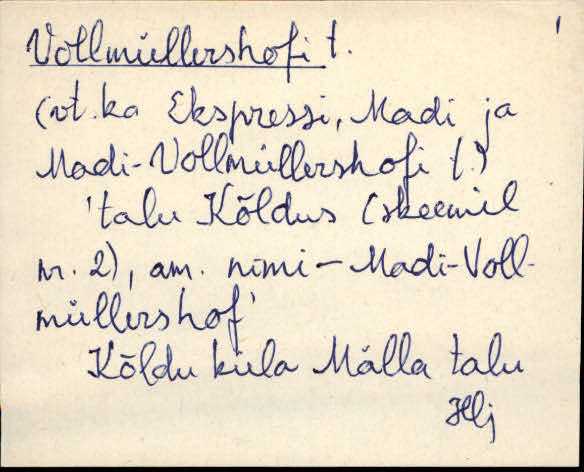 Vollmüllershofi t.
1
(vt. ka Ekspressi, Madi ja
Madi-Vollmüllershofi t.)
'talu Kõldus (skeemil
nr. 2), am. nimi - Madi-Voll-
müllershof'
Kõldu küla Mälla talu
Hlj